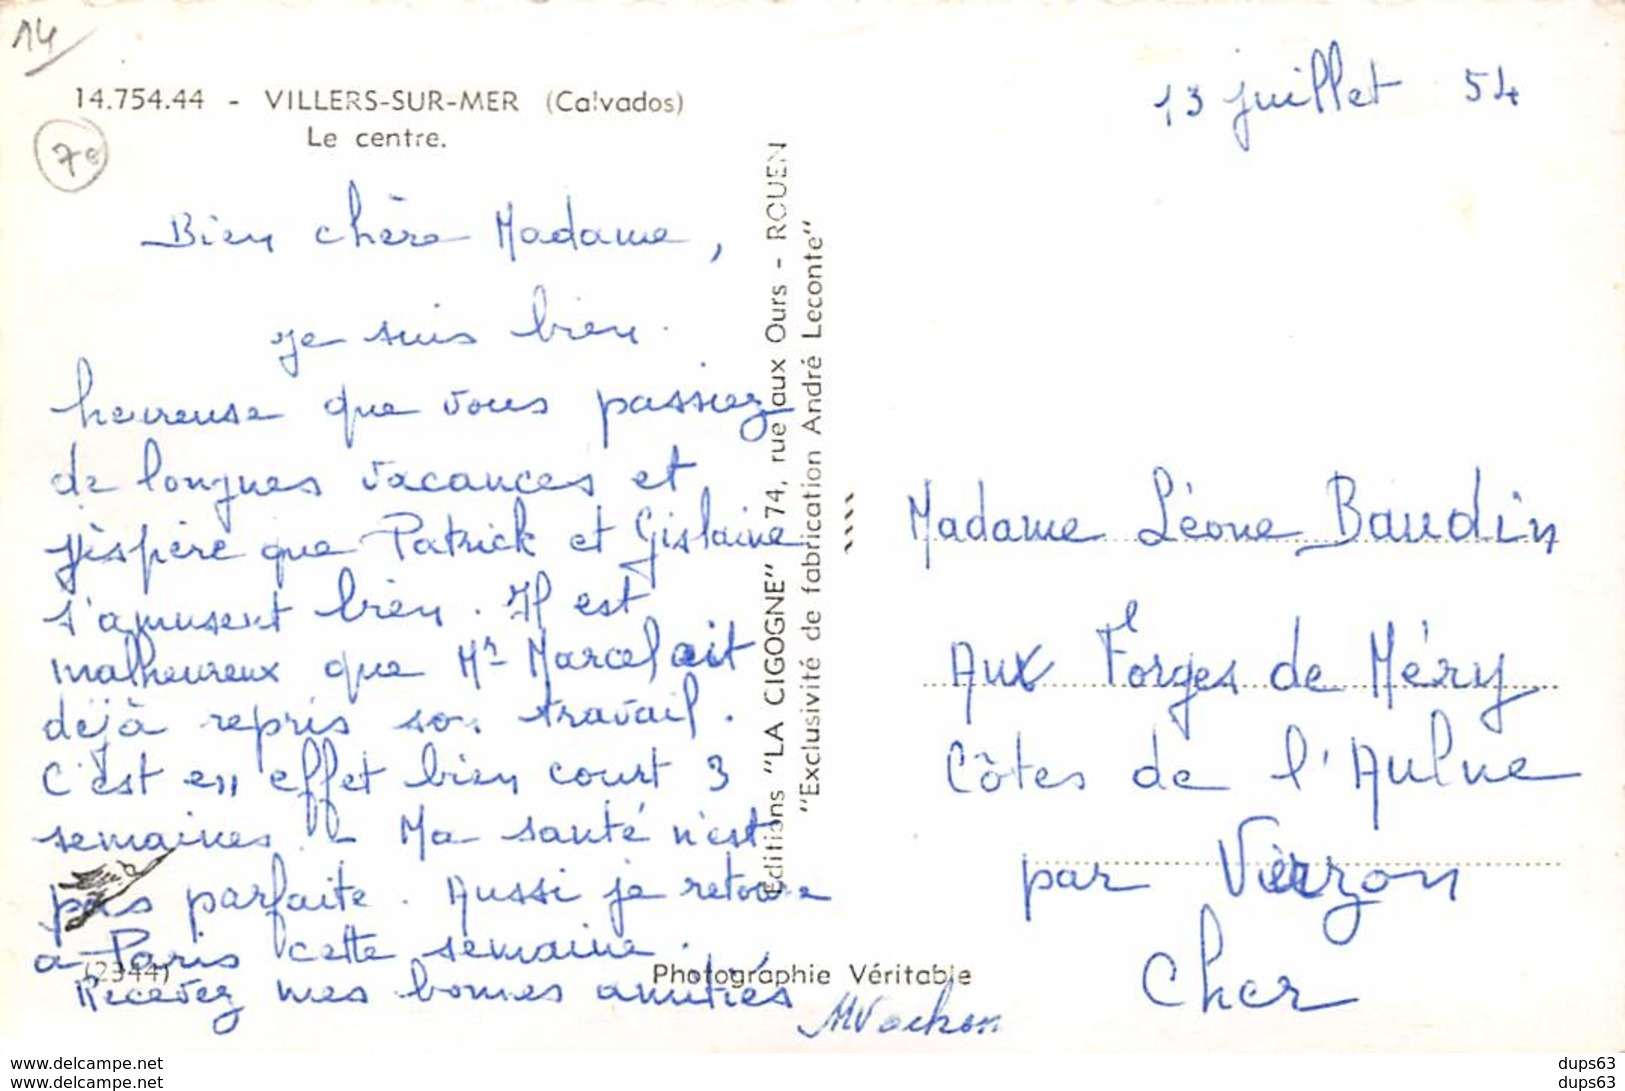 14
14.754.44 - VILLERS-SUR-MER (Calvados)
Le centre.
7e
13 juillet 54
Bien chère Madame,
je suis bien
heureuse que vous passiez
de longues vacances et
j'espère que Patrick et Gislaine
s'amusent bien. Il est
malheureux que Mr Marcel ait
déjà repris son travail.
C'est en effet bien court 3
semaines. - Ma santé n'est
pas parfaite. Aussi je retourne
à Paris cette semaine.
Recevez mes bonnes amitiés
(2344)
Photographie Véritable
Editions "LA CIGOGNE" 74, rue aux Ours - ROUEN
"Exclusivité de fabrication André Leconte"
Madame Léone Baudin
Aux Forges de Méry
Côtes de l'Aulne
par Vierzon
Cher
www.delcampe.net
www.delcampe.net
dups63
dups63